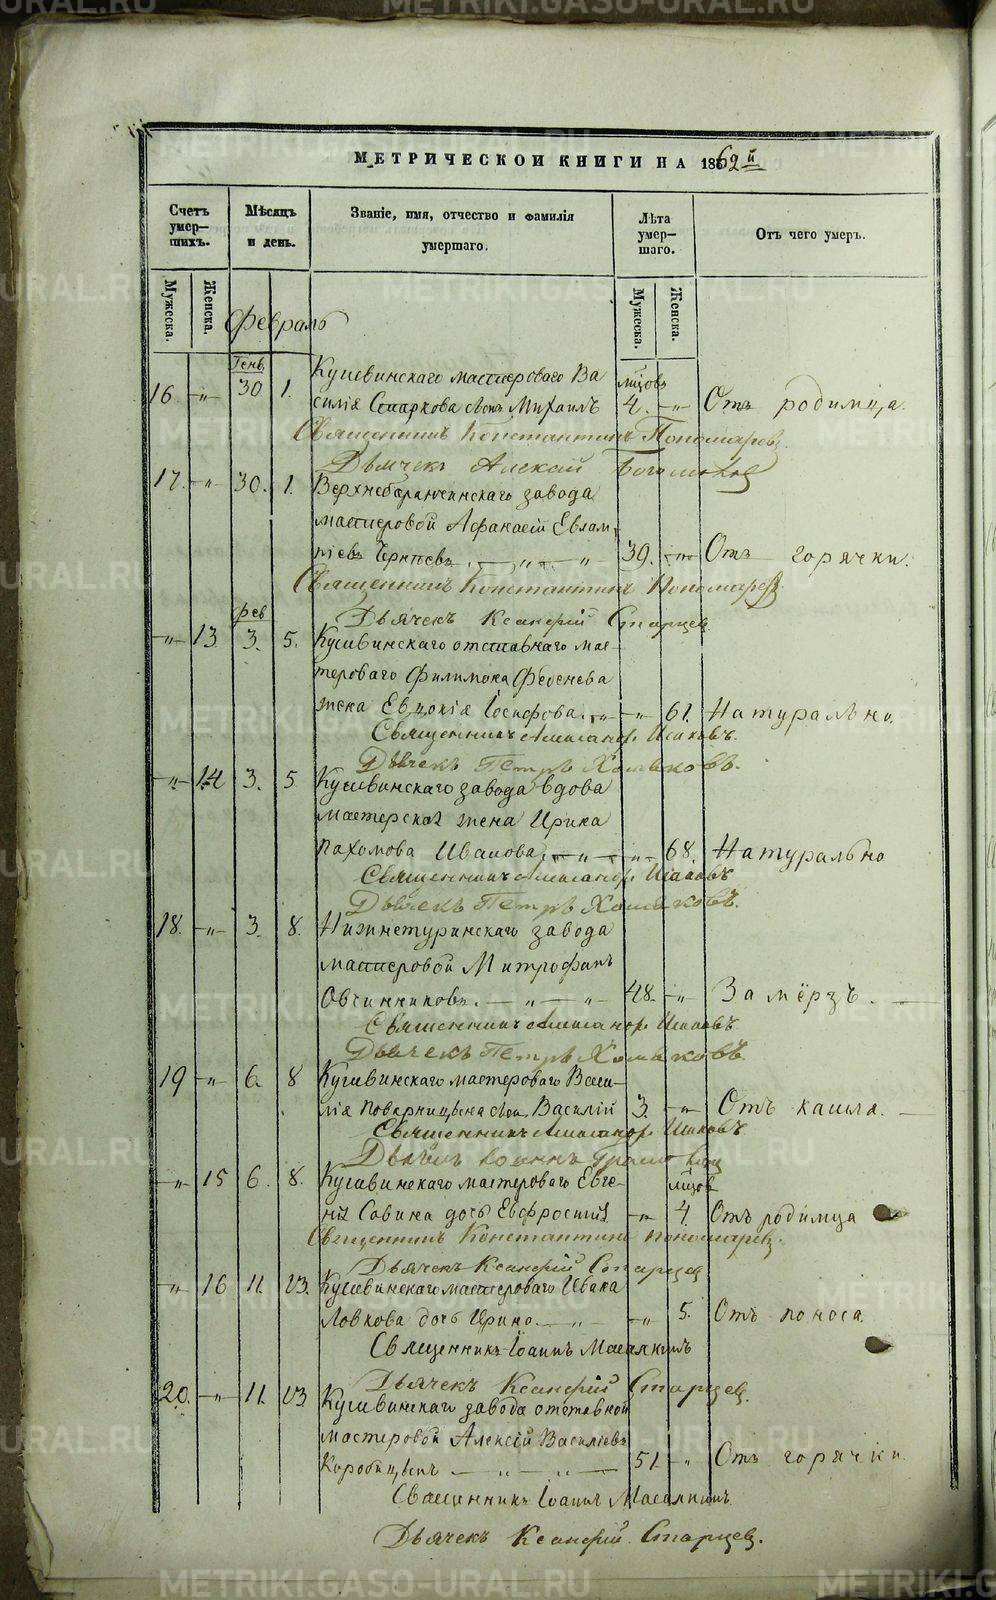 МЕТРИЧЕСКОИ КНИГИ НА 1862й
Счетъ умер-шихъ.
Мѣсяцъ и день.
Званіе, имя, отчество и фамилія умершаго.
Лѣта умер-шаго.
Отъ чего умеръ.
Мужеска. Женска.
Мужеска. Женска.
Февраль
Генв.
Кушвинскаго мастероваго Ва мѣсцов
16. „ 30 1. силія Старкова сынъ Михаилъ 4. „ Отъ родимца.
Священникъ Константинъ Пономаревъ.
Дьячекъ Алексѣй Богомолов
17. „ 30. 1. Верхнебаранчинскаго завода
мастеровой Афанасій Евлам
піевъ 39. „ Отъ горячки.
Священникъ Константинъ Пономаревъ
фев Дьячекъ Ксанфій Старцев
„ 13 3. 5. Кушвинскаго отставнаго мас-
тероваго Филимона Феденева
жена Евдокія Іосифова. „ 61. Натурально.
Священникъ Александр. Исаковъ.
Дьячекъ Петръ Хомяковъ.
„ 14 3. 5 Кушвинскаго завода вдова
мастерска жена Ирина
Пахомова Иванова. „ 68. Натурально
Священникъ Александр. Исаковъ
Дьячекъ Петръ Хомяковъ.
18. „ 3. 8. Нижнетуринскаго завода
мастеровой Митрофанъ
Овчинниковъ. „ „ 48. „ Замёрзъ.
Священникъ Александр. Исаковъ
Дьячекъ Петръ Хомяковъ
19 „ 6. 8 Кушвинскаго мастероваго Васи-
лія Поварницына сын Василій 3. „ Отъ кашля.
Священникъ Александр. Исаковъ
Дьячекъ Іоаннъ
„ 15 6. 8. Кушвинскаго мастероваго Евге- мѣсцов
нія Савина дочь Евфросинія „ 4. Отъ родимца
Священникъ Константинъ Пономаревъ.
Дьячекъ Ксанфій Старцев
„ 16 11. 13. Кушвинскаго мастероваго Ивана
Ловкова дочь Ирина. „ „ 5. Отъ поноса
Священникъ Іоаннъ
Дьячекъ Ксанфій Старцев.
20. „ 11. 13 Кушвинскаго завода отставной
мастеровой Алексій Василіевъ
Коробицынъ „ „ 51 „ Отъ горячки.
Священникъ Іоаннъ
Дьячекъ Ксанфій Старцев.
METRIKI.GASO-URAL.RU